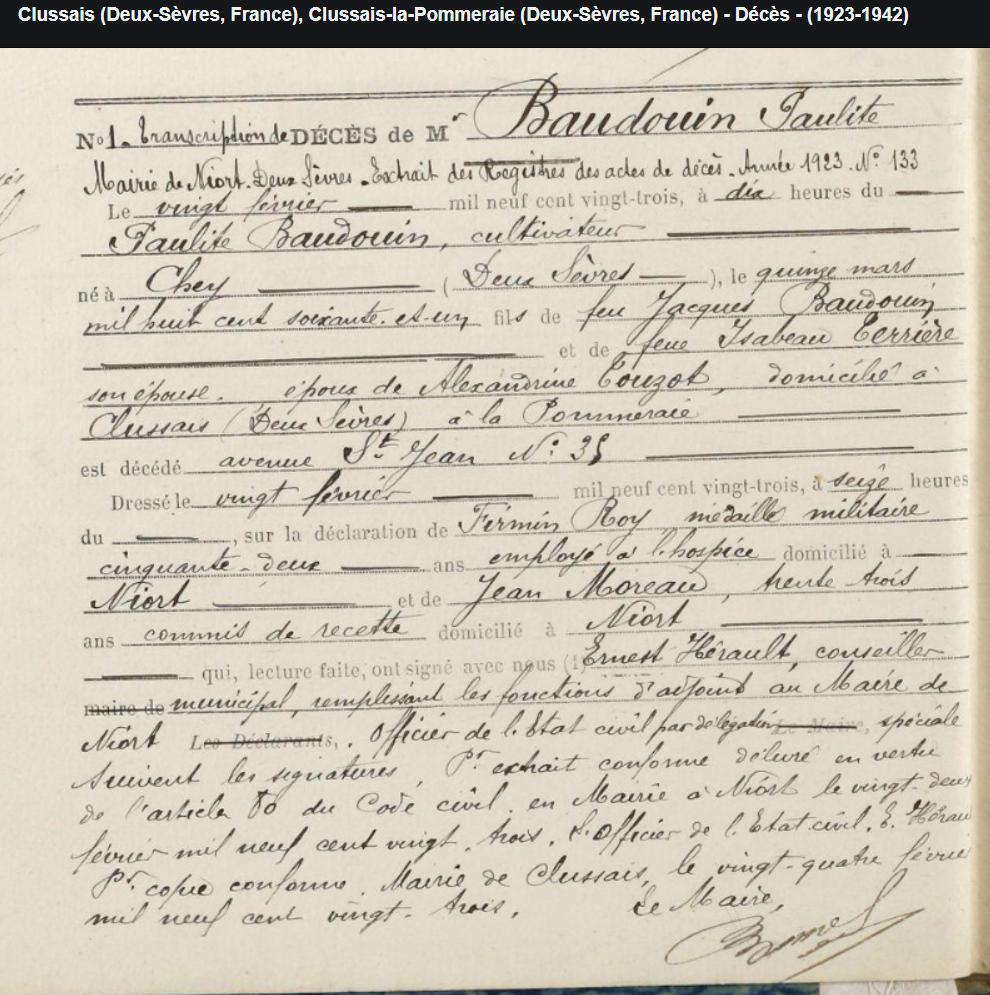 Clussais (Deux-Sèvres, France), Clussais-la-Pommeraie (Deux-Sèvres, France) - Décès - (1923-1942)
No 1. Transcription de DÉCÈS de Mr Baudouin Paulite
Mairie de Niort. Deux Sèvres - Extrait des Registres des actes de décès. Année 1923. No 133
Le vingt février mil neuf cent vingt-trois, à dix heures du
Paulite Baudouin, cultivateur
né à Chey (Deux Sèvres), le quinze mars
mil huit cent soixante-et-un, fils de feu Jacques Baudouin
et de feue Isabeau Terrière
son épouse. époux de Alexandrine Touzot, domicilié à
Clussais (Deux Sèvres) à la Pommeraie
est décédé avenue St Jean No: 35
Dressé le vingt février mil neuf cent vingt-trois, à seize heures
du , sur la déclaration de Firmin Roy, médaillé militaire
cinquante-deux ans employé à l'hospice domicilié à
Niort et de Jean Moreau, trente trois
ans commis de recette domicilié à Niort
qui, lecture faite, ont signé avec nous (1) Ernest Hérault, conseiller
maire de municipal, remplissant les fonctions d'adjoint au Maire de
Niort Les Déclarants, . Officier de l'Etat civil par délégation Le Maire, spéciale
Suivent les signatures. Pr. extrait conforme délivré en vertu
de l'article 80 du Code civil. en Mairie à Niort le vingt-deux
février mil neuf cent vingt-trois. L'Officier de l'Etat-civil. E. Hérau
Pr. copie conforme. Mairie de Clussais, le vingt-quatre février
mil neuf cent vingt-trois. Le Maire,